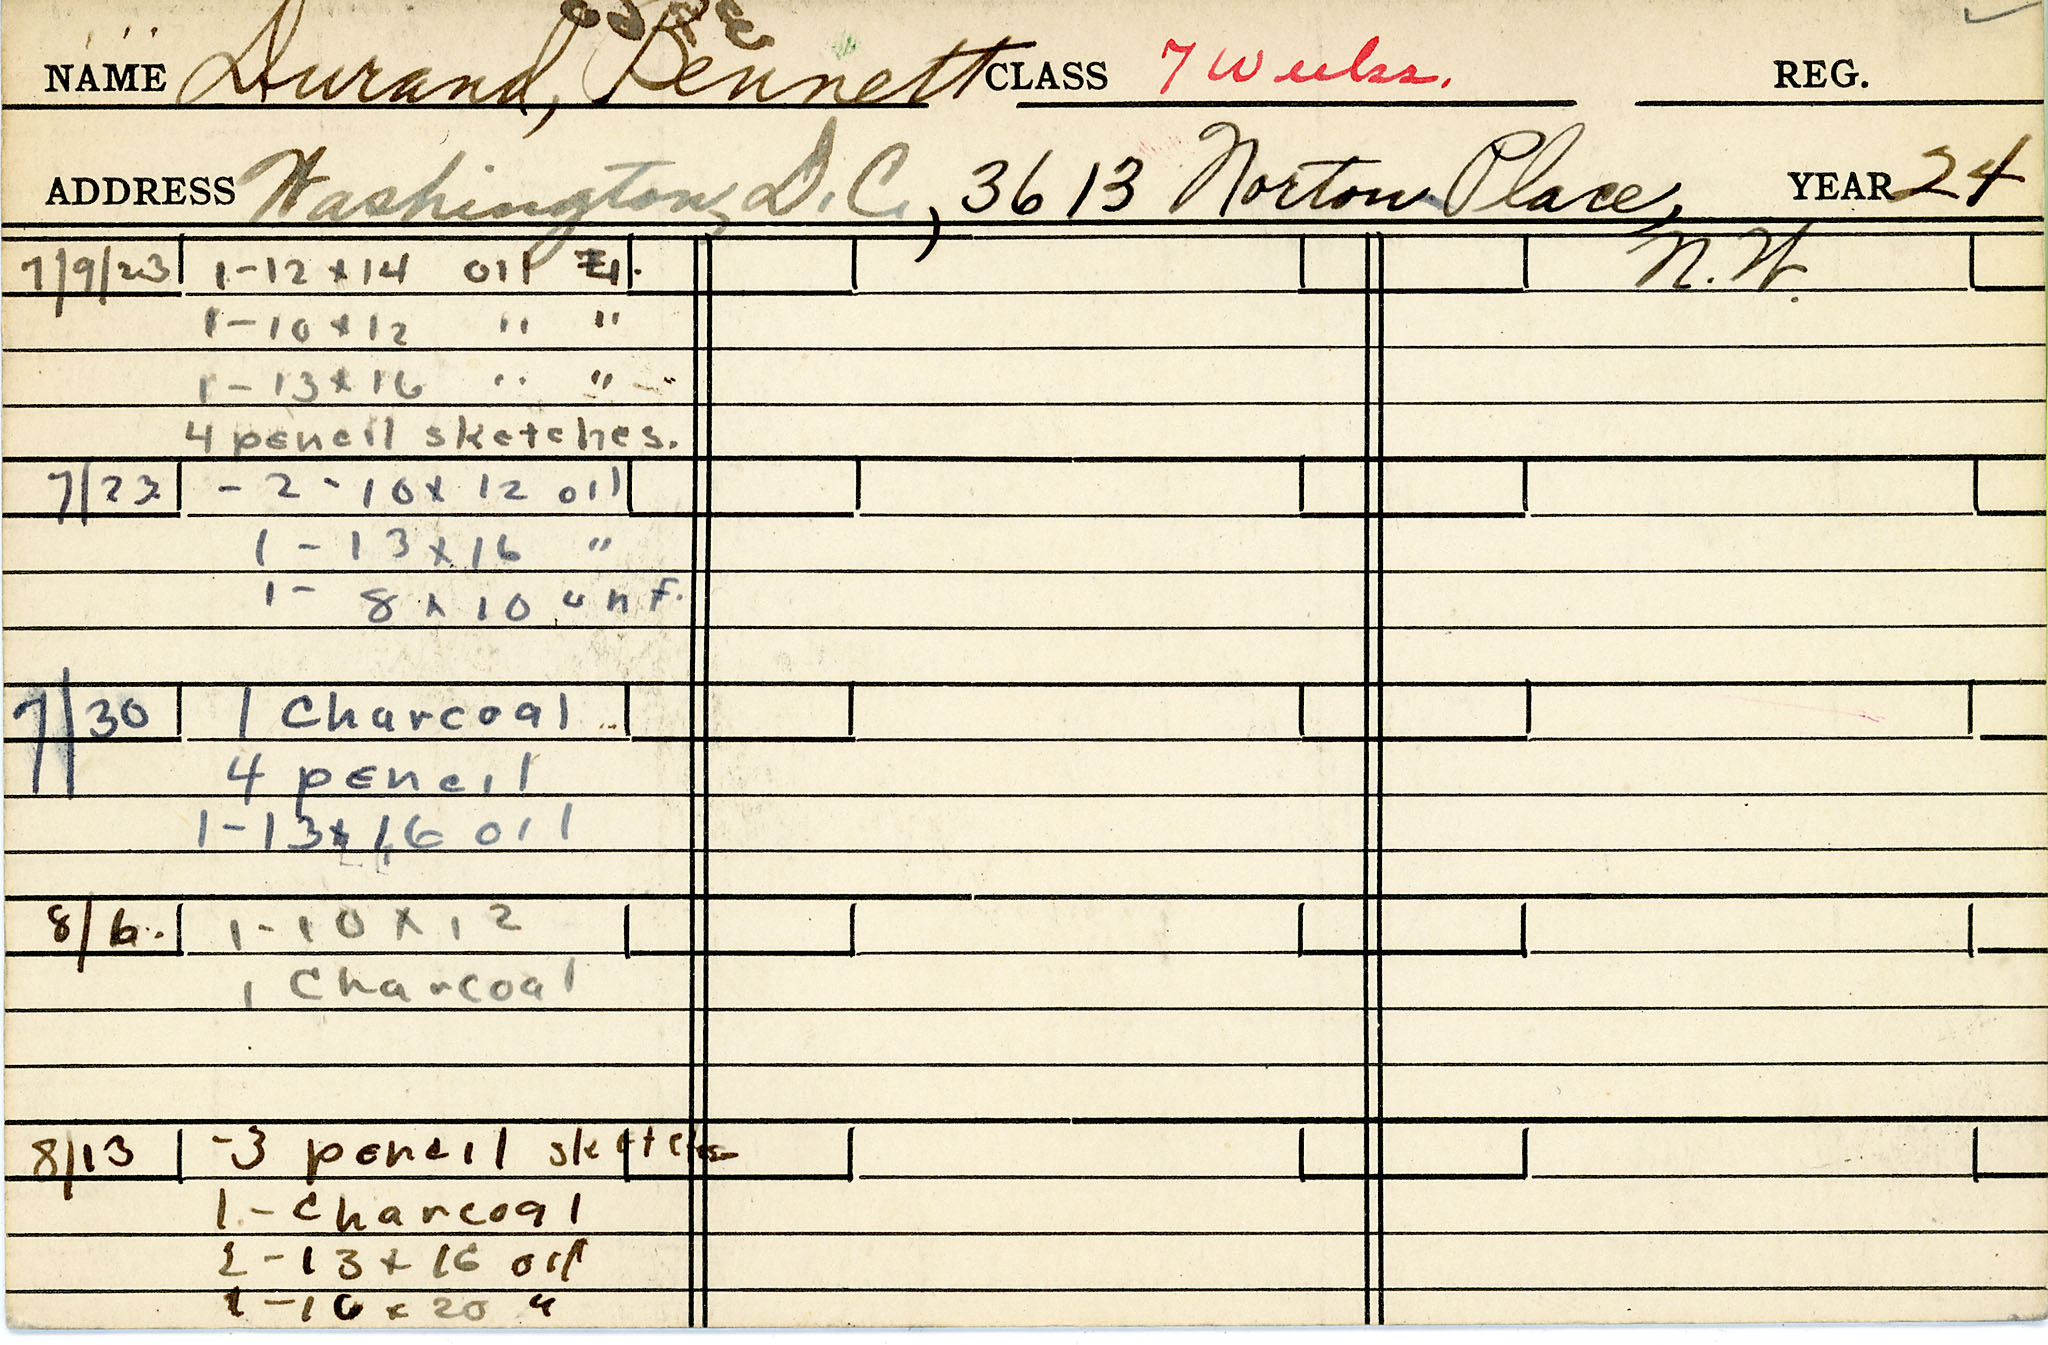 NAME Durand, Bennett CLASS 7 Weeks. REG.
ADDRESS Washington, D.C., 3613 Norton Place, YEAR 24
N.W.
7/9/23 1-12x14 oil
1-10x12 " "
1-13x16 " "
4 pencil sketches.
7/23 - 2 - 10x12 oil
1 - 13x16 "
1- 8x10 unf.
7/30 1 Charcoal
4 pencil
1-13x16 oil
8/6. 1-10x12
1 Charcoal
8/13 -3 pencil sketches
1-Charcoal
2-13x16 oil
1-16x20 "